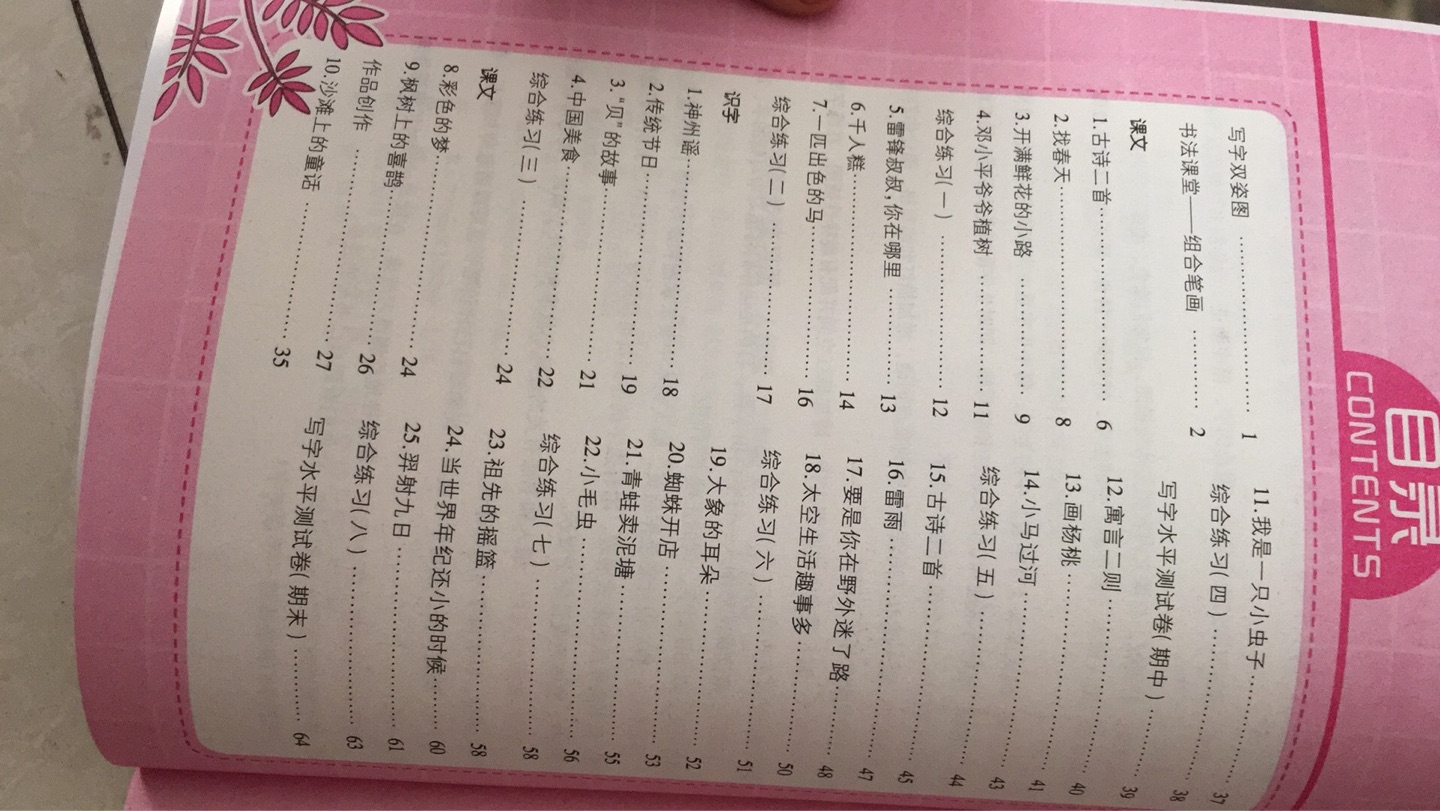 目录
CONTENTS
写字双姿图 …………………… 1
书法课堂——组合笔画 ………… 2
课文
1.古诗二首 …………………… 6
2.找春天 …………………… 8
3.开满鲜花的小路 …………… 9
4.邓小平爷爷植树 …………… 11
综合练习(一) ……………… 12
5.雷锋叔叔,你在哪里 ………… 13
6.千人糕 …………………… 14
7.一匹出色的马 ……………… 16
综合练习(二) ……………… 17
识字
1.神州谣 …………………… 18
2.传统节日 …………………… 19
3.“贝”的故事 ………………… 21
4.中国美食 …………………… 22
综合练习(三) ……………… 24
课文
8.彩色的梦 …………………… 24
9.枫树上的喜鹊 ……………… 26
作品创作 …………………… 27
10.沙滩上的童话 …………… 35
11.我是一只小虫子 ………… 37
综合练习(四) ……………… 38
写字水平测试卷(期中) ……… 39
12.寓言二则 ………………… 40
13.画杨桃 …………………… 41
14.小马过河 ………………… 43
综合练习(五) ……………… 44
15.古诗二首 ………………… 45
16.雷雨 ……………………… 47
17.要是你在野外迷了路 ……… 48
18.太空生活趣事多 ………… 50
综合练习(六) ……………… 51
19.大象的耳朵 ……………… 52
20.蜘蛛开店 ………………… 53
21.青蛙卖泥塘 ……………… 55
22.小毛虫 …………………… 56
综合练习(七) ……………… 58
23.祖先的摇篮 ……………… 58
24.当世界年纪还小的时候 …… 60
25.羿射九日 ………………… 61
综合练习(八) ……………… 63
写字水平测试卷(期末) ……… 64